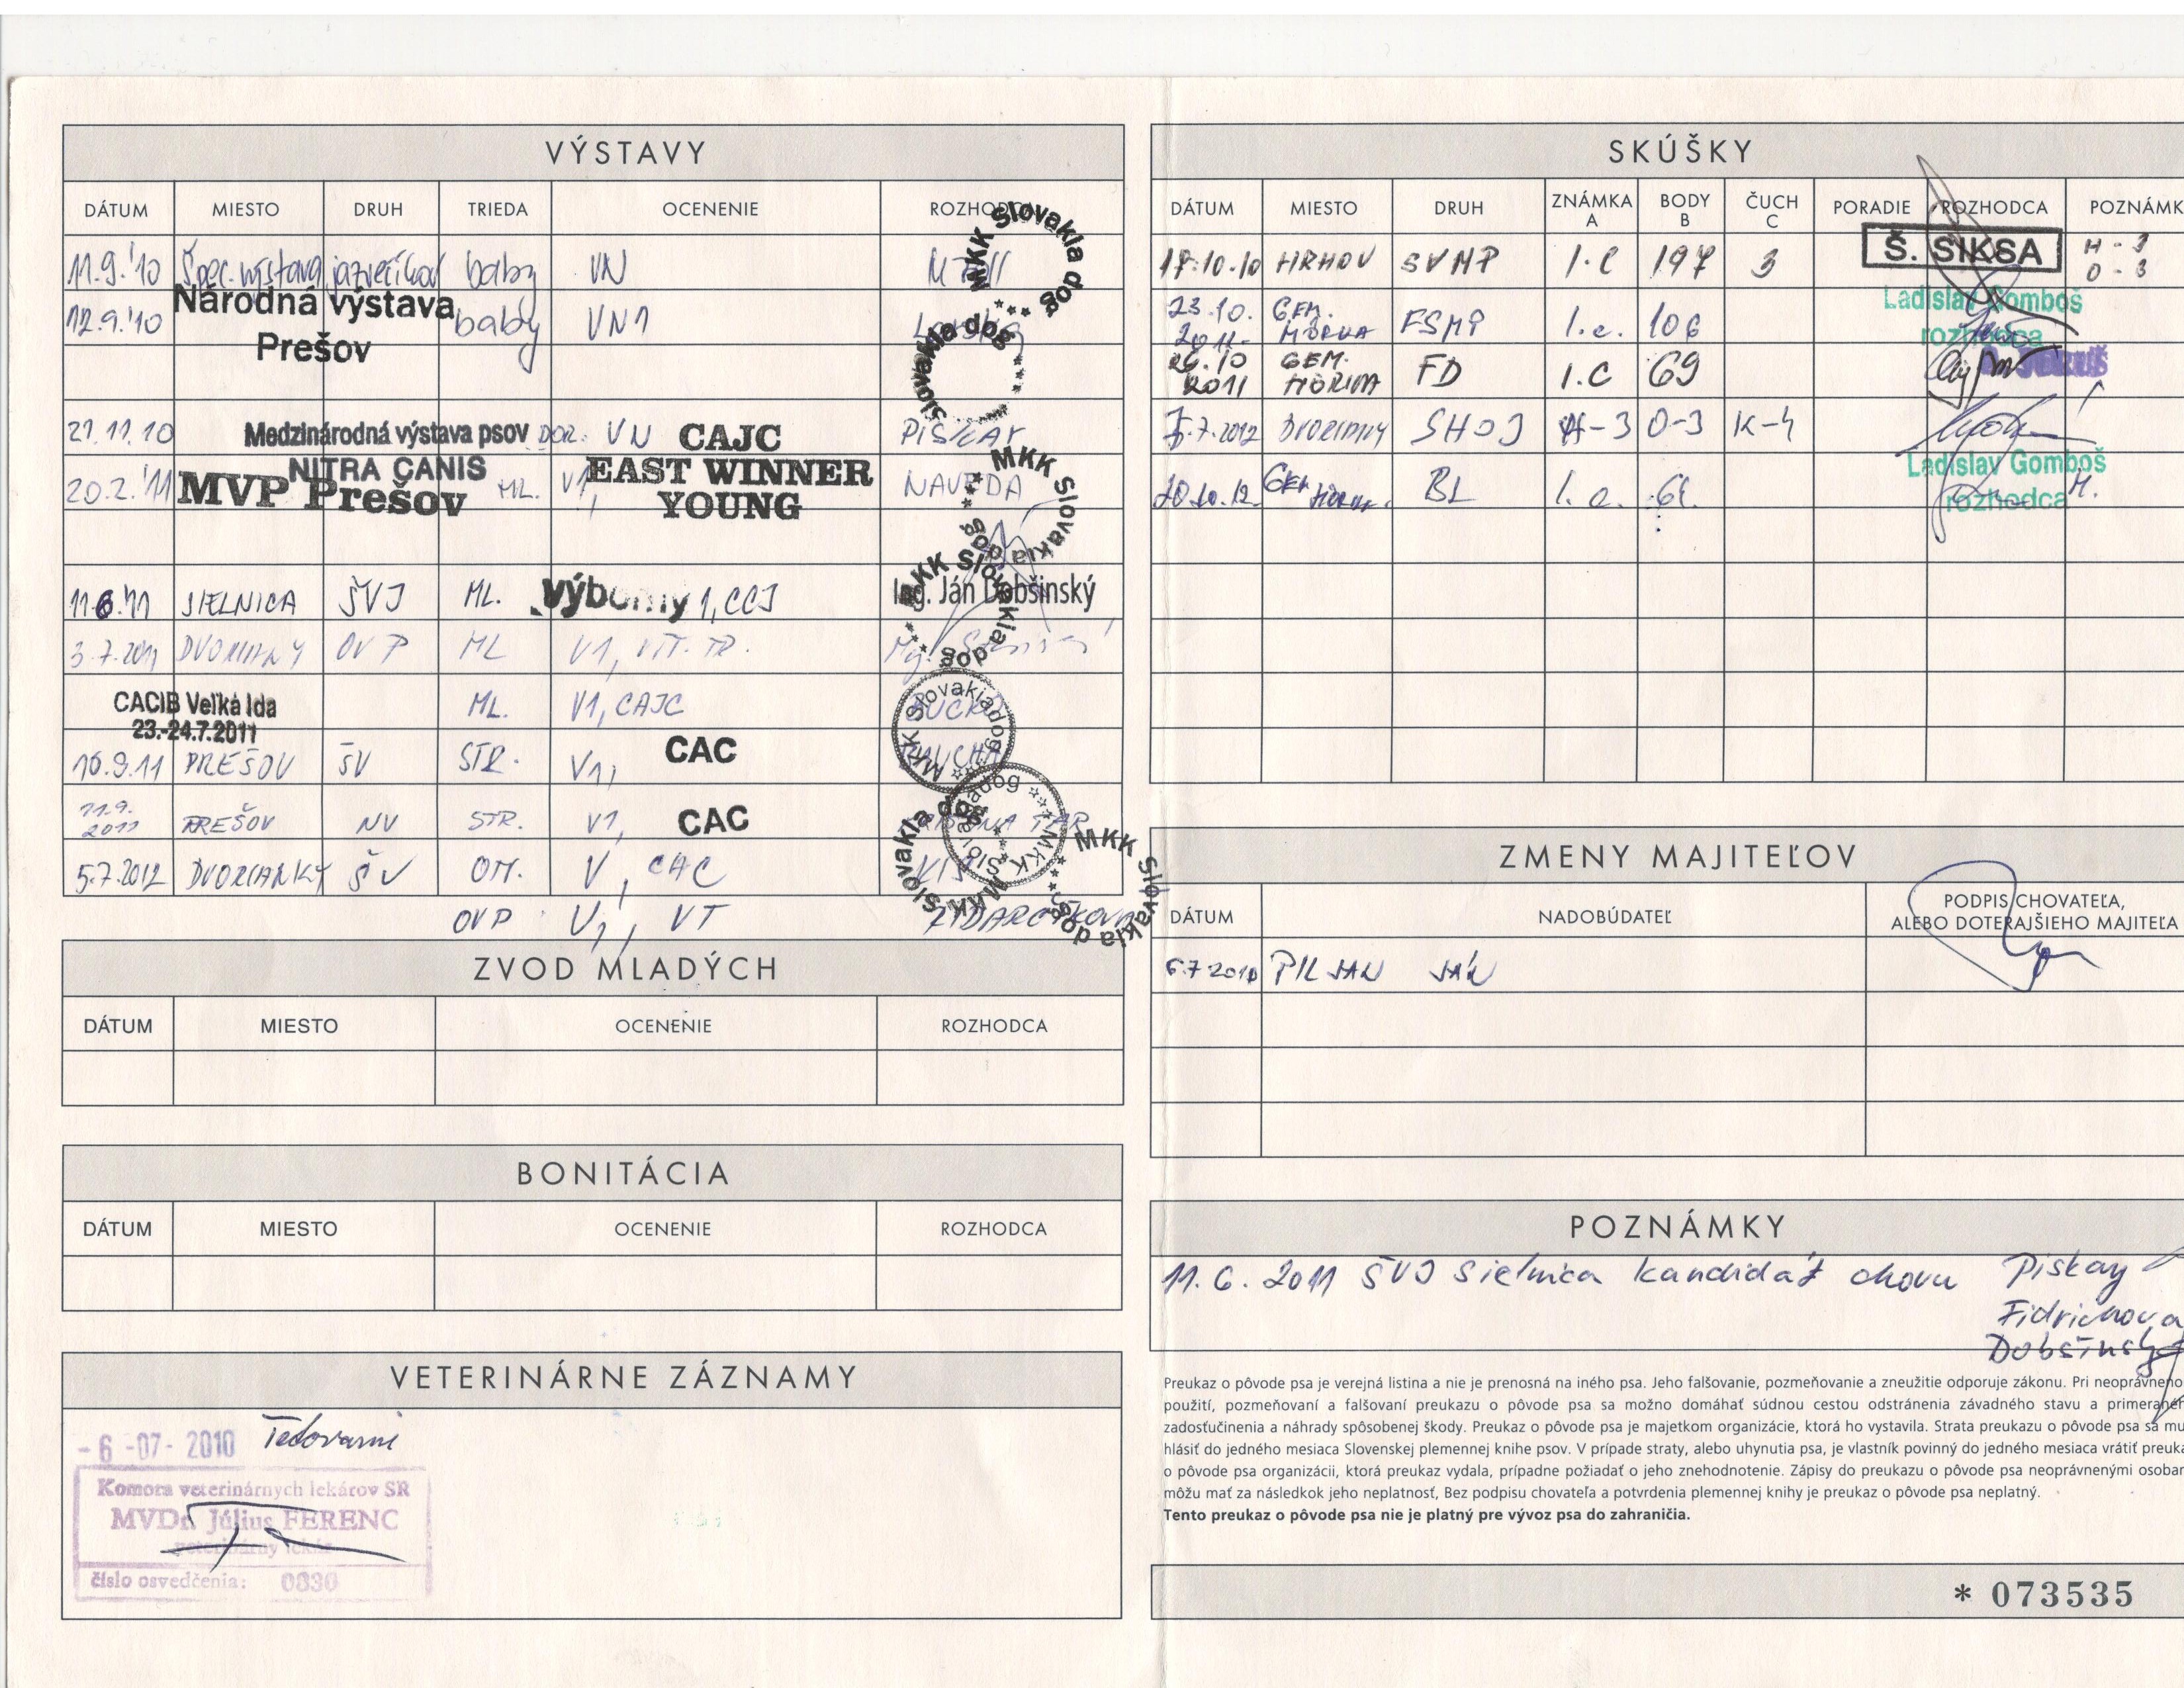 VÝSTAVY
DÁTUM MIESTO DRUH TRIEDA OCENENIE ROZHODCA
11.9.'10 Špec. výstava jazvečíkov baby VN
12.9.'10 Národná výstava Prešov baby VN1
21.11.10 Medzinárodná výstava psov NITRA CANIS DOR. VN CAJC
20.2.'11 MVP Prešov ML. V1, EAST WINNER YOUNG NAVEDA
11.6.'11 SIELNICA ŠVJ ML. Výborný 1, CCJ Ing. Ján Dobšinský
3.7.2011 OVP ML V1, VÍT. TR.
CACIB Veľká Ida 23.-24.7.2011 ML. V1, CAJC
10.9.11 PREŠOV ŠV STR. V1, CAC
11.9.2011 PREŠOV NV STR. V1, CAC
5.7.2012 DVORIANKY ŠV OM. V, CAC
OVP V1, VT
MKK Slovakia dog
Slovakia dog
MKK Slovakia dog
MKK Slovakia dog
MKK Slovakiadog
MKK Slovakiadog
MKK Slovakia dog
MKK Slovakia dog
ZVOD MLADÝCH
DÁTUM MIESTO OCENENIE ROZHODCA
BONITÁCIA
DÁTUM MIESTO OCENENIE ROZHODCA
VETERINÁRNE ZÁZNAMY
-6-07-2010
Komora veterinárnych lekárov SR
MVDr. Július FERENC
veterinárny lekár
číslo osvedčenia: 0830
SKÚŠKY
DÁTUM MIESTO DRUH ZNÁMKA A BODY B ČUCH C PORADIE ROZHODCA POZNÁMK
17.10.10 HRHOV SVMP I.C 197 3 Š. SIKSA H-3 O-3
23.10.2011 GEM. HÔRKA FSMP I.c. 106 Ladislav Gomboš rozhodca
GEM. HÔRKA FD I.C 69
7.2012 SHOJ H-3 O-3 K-4
20.10.12 GEM. BL I.c. Ladislav Gomboš rozhodca
ZMENY MAJITEĽOV
DÁTUM NADOBÚDATEĽ PODPIS CHOVATEĽA,
ALEBO DOTERAJŠIEHO MAJITEĽA
6.7.2010 PILJAN JÁN
POZNÁMKY
11.6.2011 ŠVJ Sielnica kandidát chovu Piskay
Fidrichova
Dobšinský
Preukaz o pôvode psa je verejná listina a nie je prenosná na iného psa. Jeho falšovanie, pozmeňovanie a zneužitie odporuje zákonu. Pri neoprávneno
použití, pozmeňovaní a falšovaní preukazu o pôvode psa sa možno domáhať súdnou cestou odstránenia závadného stavu a primeraneh
zadosťučinenia a náhrady spôsobenej škody. Preukaz o pôvode psa je majetkom organizácie, ktorá ho vystavila. Strata preukazu o pôvode psa sa mu
hlásiť do jedného mesiaca Slovenskej plemennej knihe psov. V prípade straty, alebo uhynutia psa, je vlastník povinný do jedného mesiaca vrátiť preuka
o pôvode psa organizácii, ktorá preukaz vydala, prípadne požiadať o jeho znehodnotenie. Zápisy do preukazu o pôvode psa neoprávnenými osobar
môžu mať za následkok jeho neplatnosť, Bez podpisu chovateľa a potvrdenia plemennej knihy je preukaz o pôvode psa neplatný.
Tento preukaz o pôvode psa nie je platný pre vývoz psa do zahraničia.
* 073535